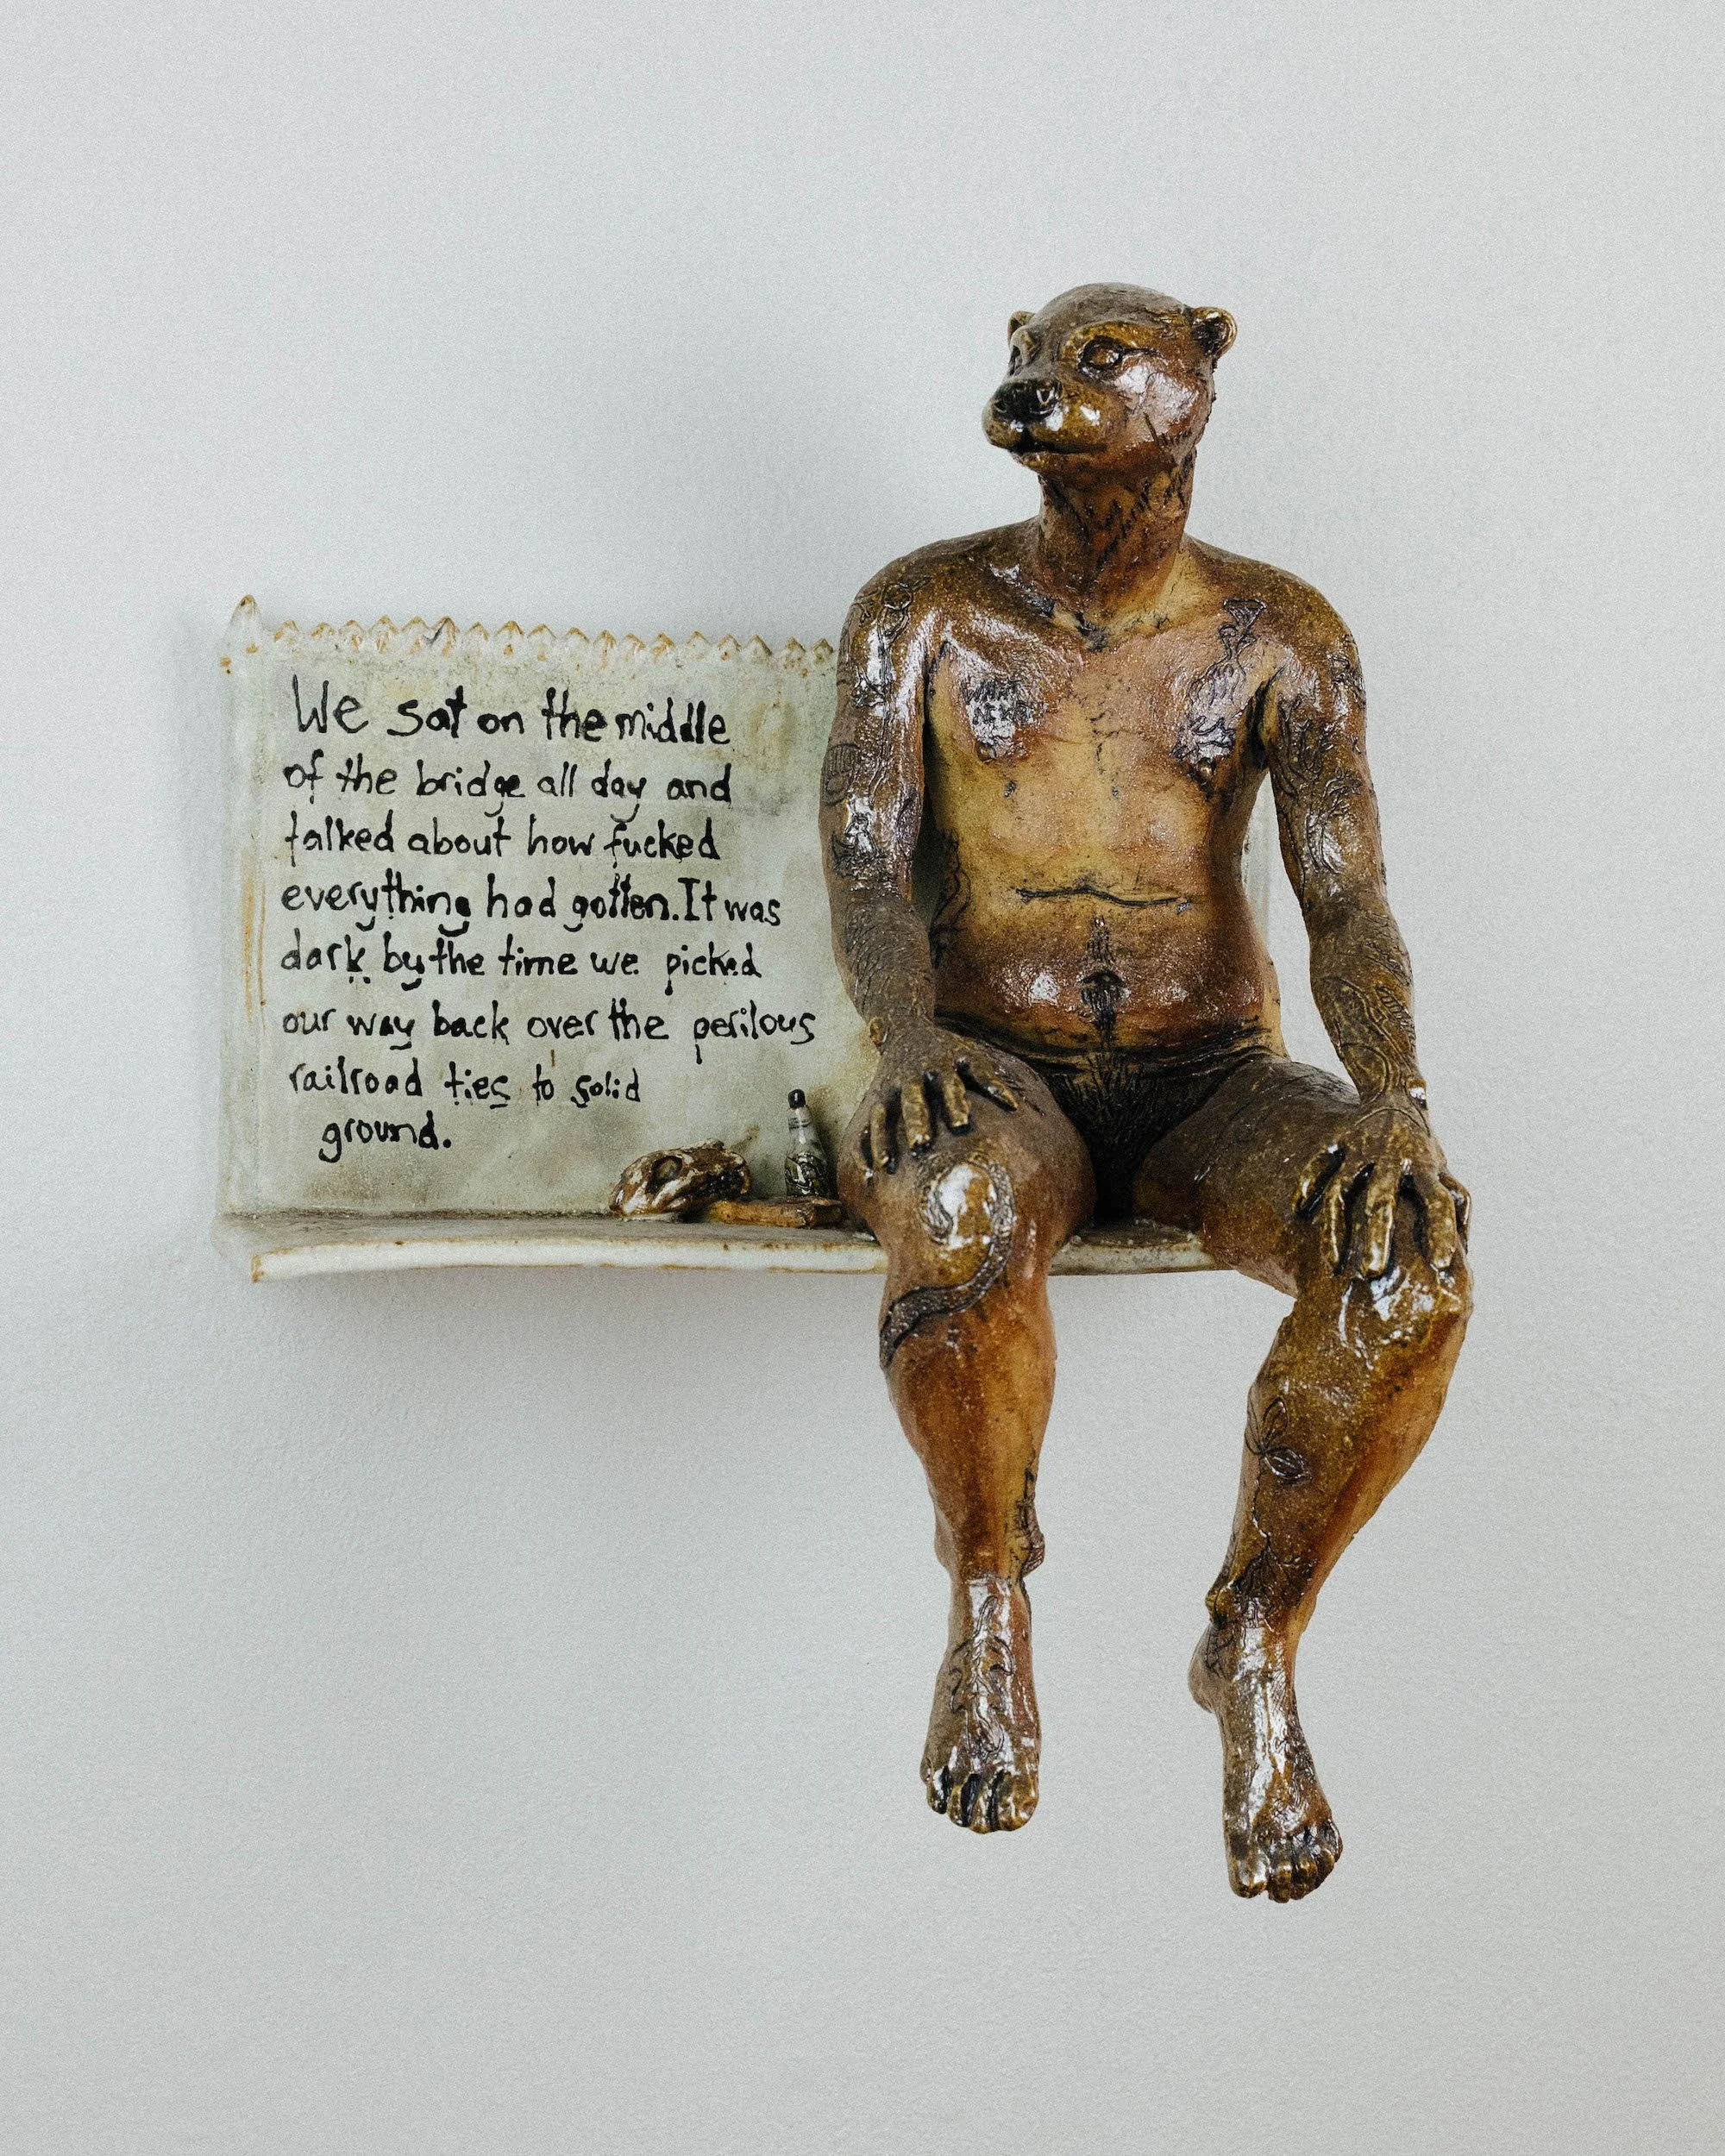 We sat on the middle
of the bridge all day and
talked about how fucked
everything had gotten. It was
dark by the time we picked
our way back over the perilous
railroad ties to solid
ground.